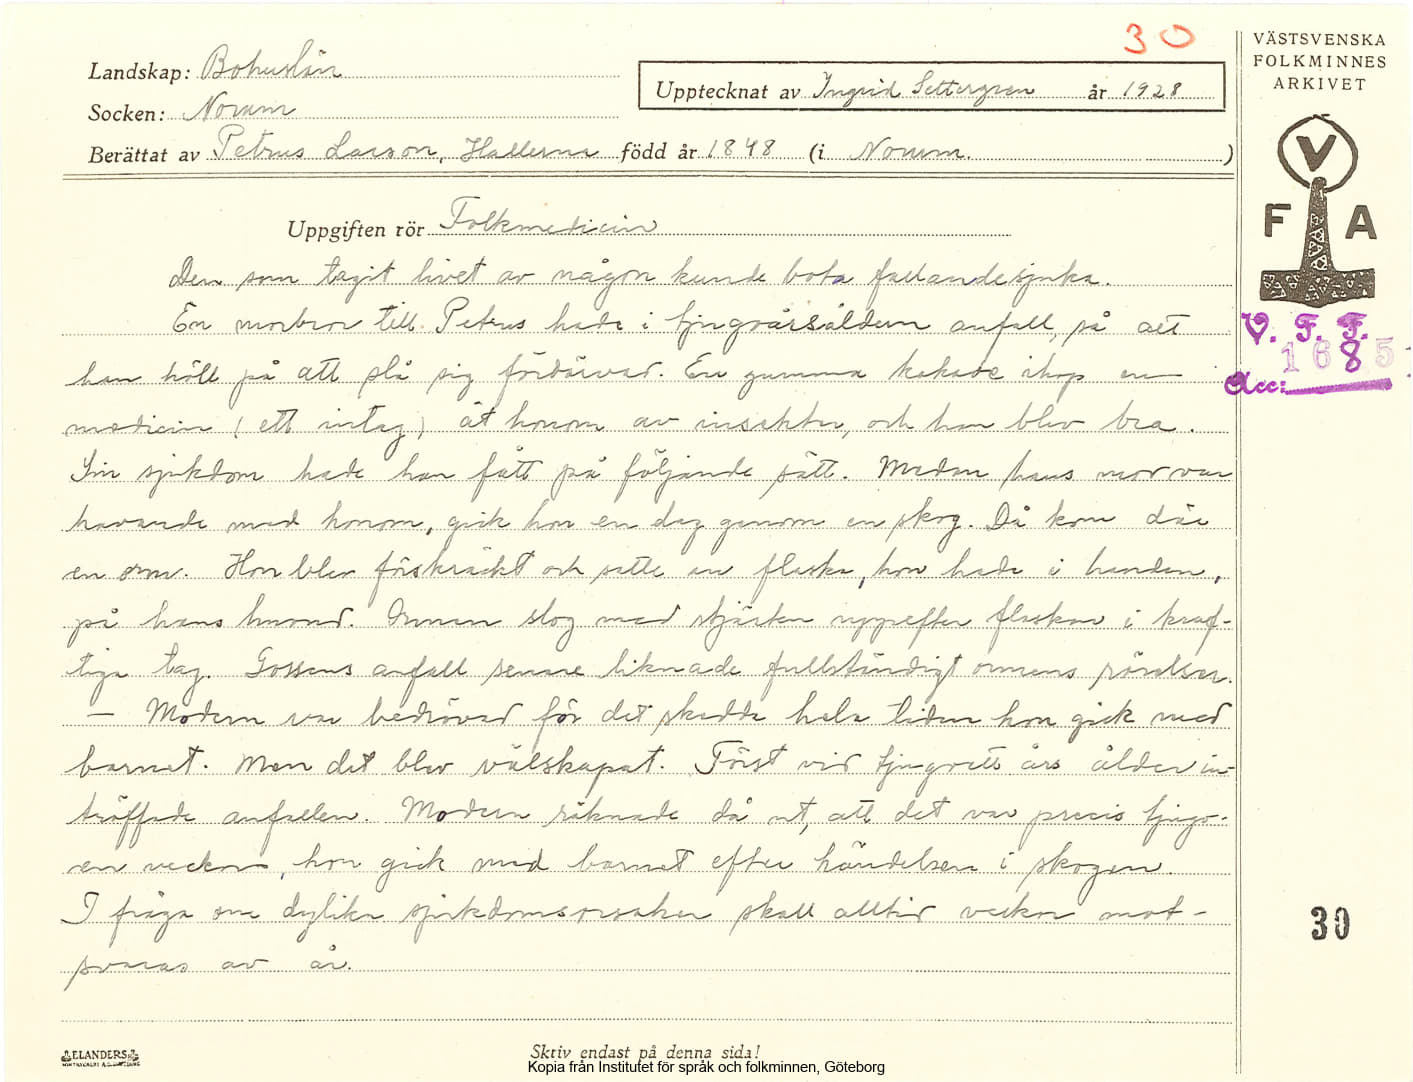 30
VÄSTSVENSKA
FOLKMINNES
ARKIVET
Landskap: Bohuslän
Upptecknat av Ingrid Settergren år 1928
Socken: Norum
Berättat av Petrus Larson, Hallerna född år 1848 (i Norum.)
V
F A
Uppgiften rör Folkmedicin
Den som tagit livet av någon kunde bota fallandesjuka.
En morbror till Petrus hade i tjugoårsåldern anfall, så att
V. F. F.
1685
Acc:
han höll på att slå sig fördärvad. En gumma kokade ihop en
medicin (ett intag) åt honom av insekter, och han blev bra.
Sin sjukdom hade han fått på följande sätt. Medan hans mor var
havande med honom, gick hon en dag genom en skog. Då kom där
en orm. Hon blev förskräckt och satte en flaska, hon hade i handen,
på hans huvud. Ormen slog med stjärten uppefter flaskan i kraf-
tiga tag. Gossens anfall senare liknade fullständigt ormens rörelser.
— Modern var bedrövad för det skedda hela tiden hon gick med
barnet. Men det blev välskapat. Först vid tjugoett års ålder in-
träffade anfallen. Modern räknade då ut, att det var precis tjugo-
en veckor, hon gick med barnet efter händelsen i skogen.
I fråga om dylika sjukdomsorsaker skall alltid veckor mot-
svaras av år.
30
ELANDERS
Skriv endast på denna sida!
Kopia från Institutet för språk och folkminnen, Göteborg